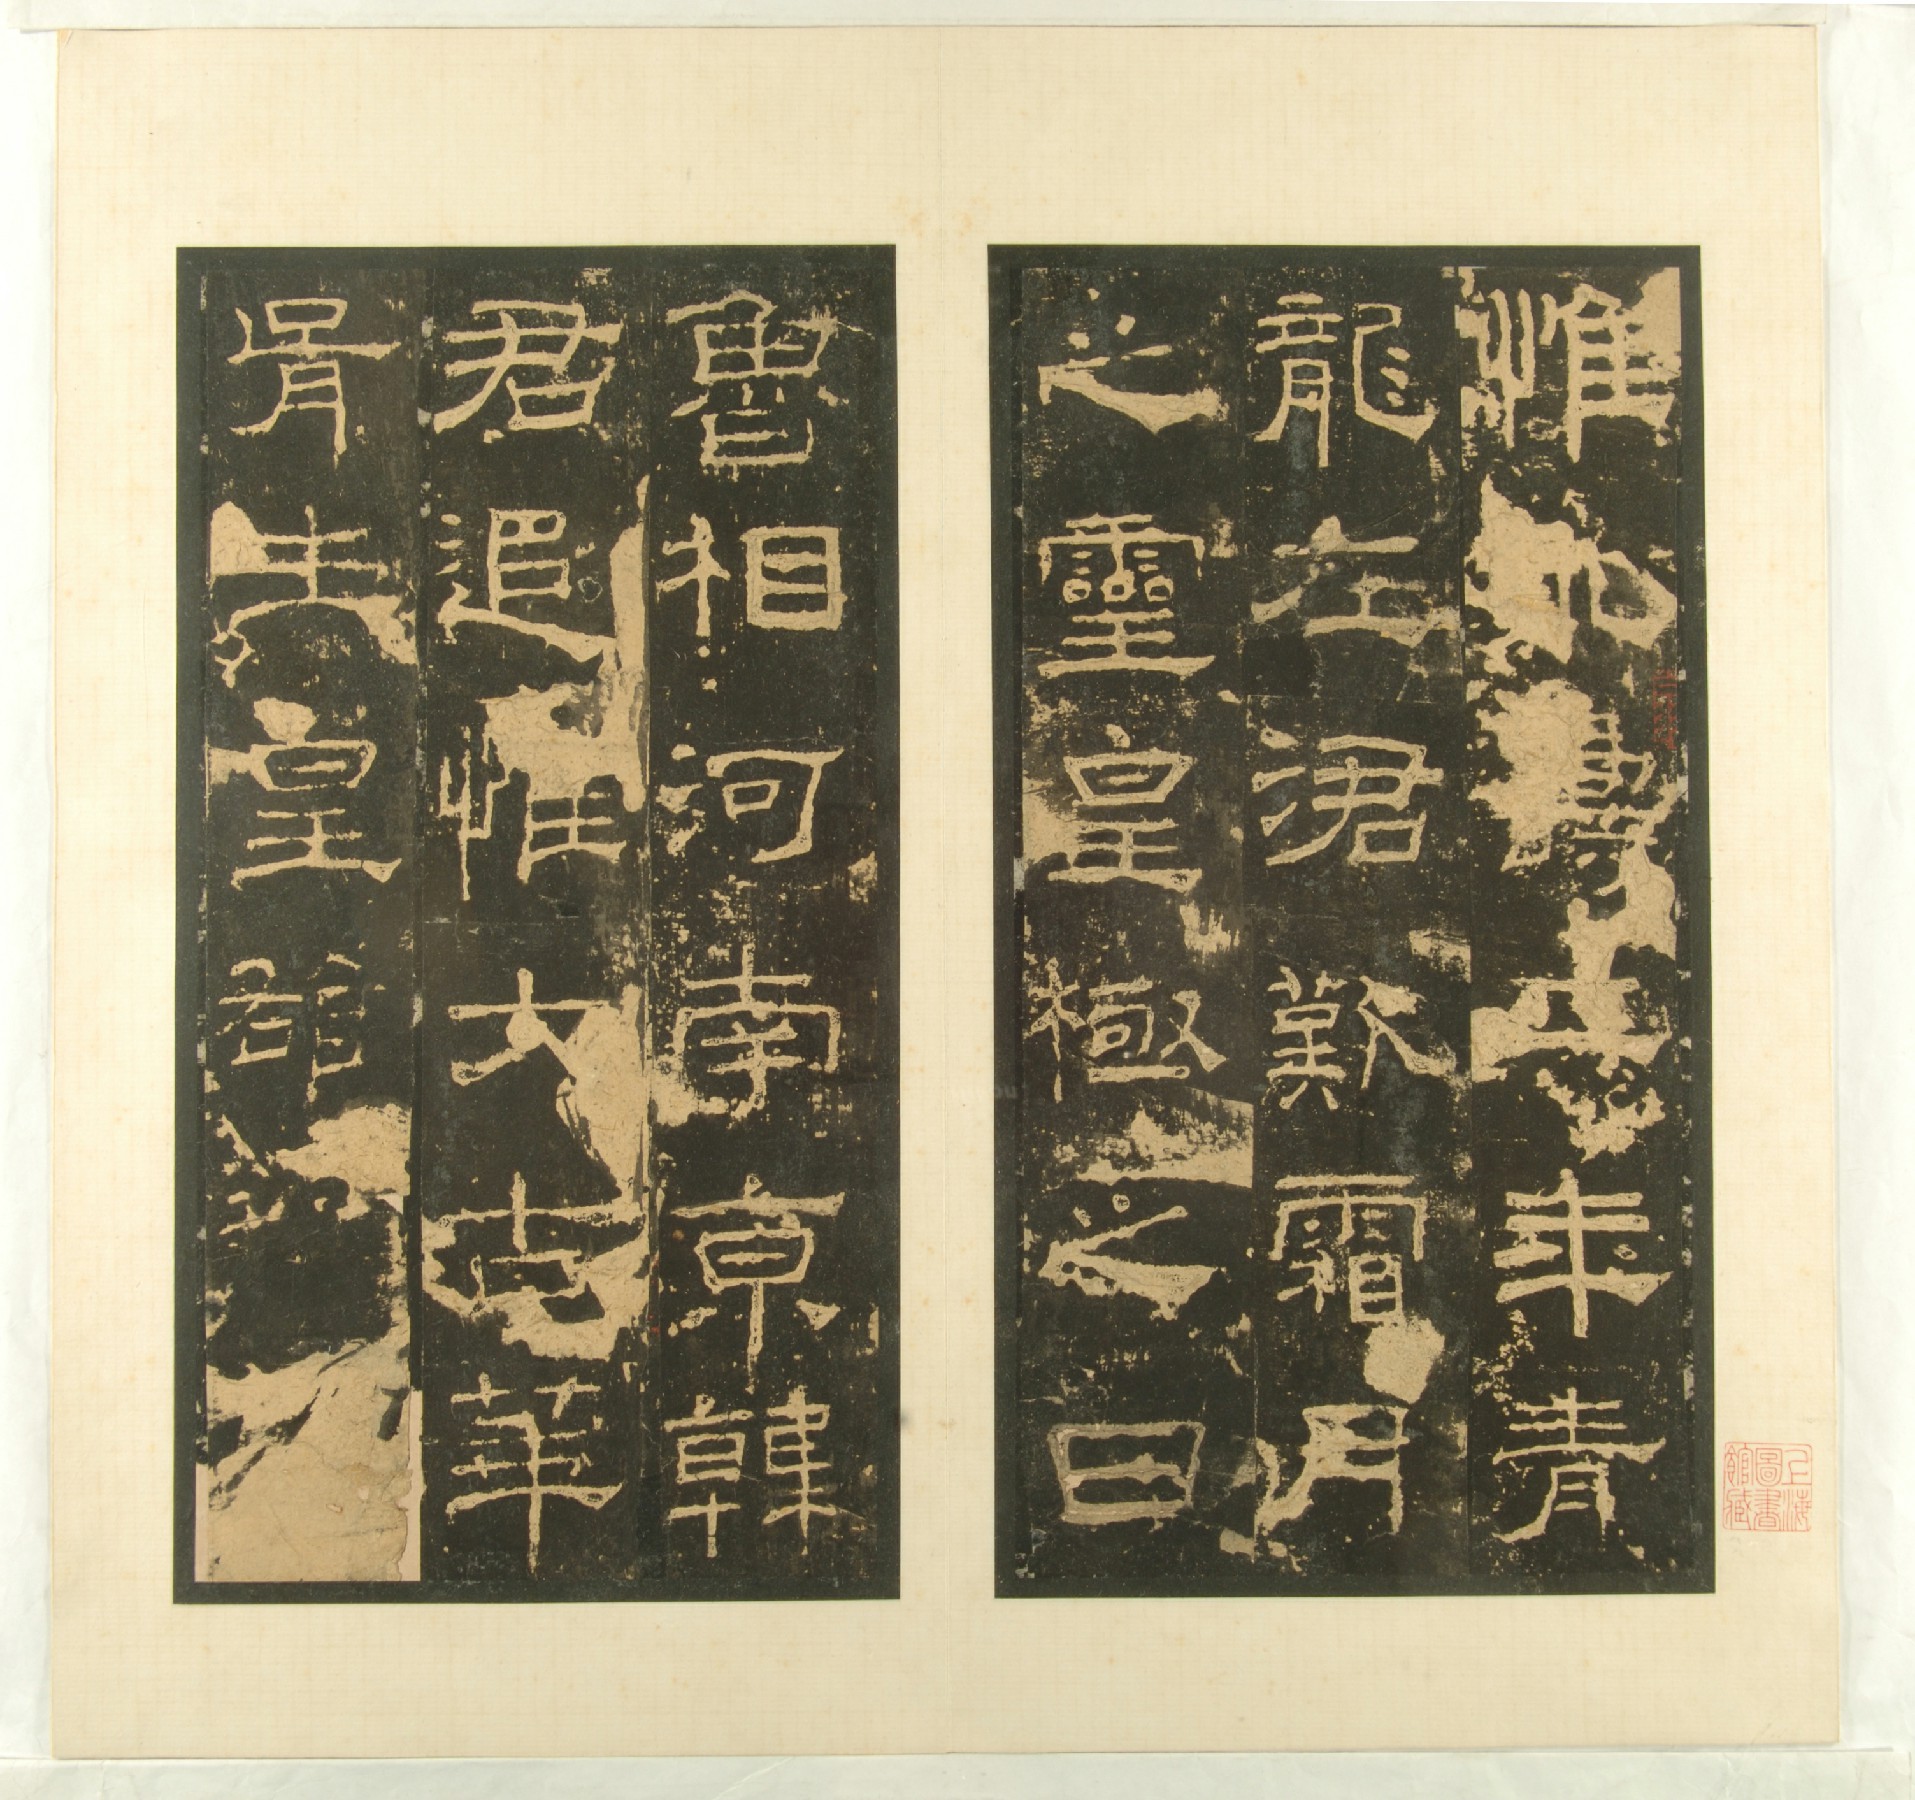 惟永壽二年青
龍在涒歎霜月
之靈皇極之日
魯相河南京韓
君追惟大古華
胥生皇雄
上海圖書館藏